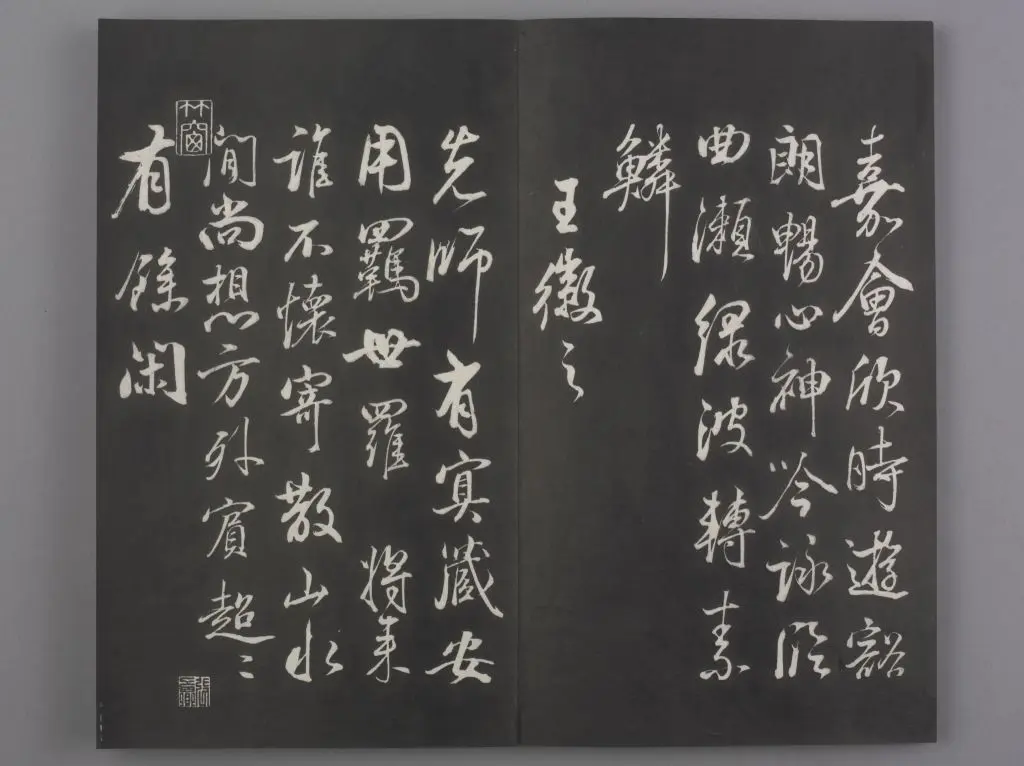 嘉會欣時遊豁
朗暢心神吟詠臨
曲瀨綠波轉素
鱗
王徽之
先師有冥藏安
用羈世羅將来
誰不懷寄散山水
竹窗
閒尚想方外賓超〻
有餘閑